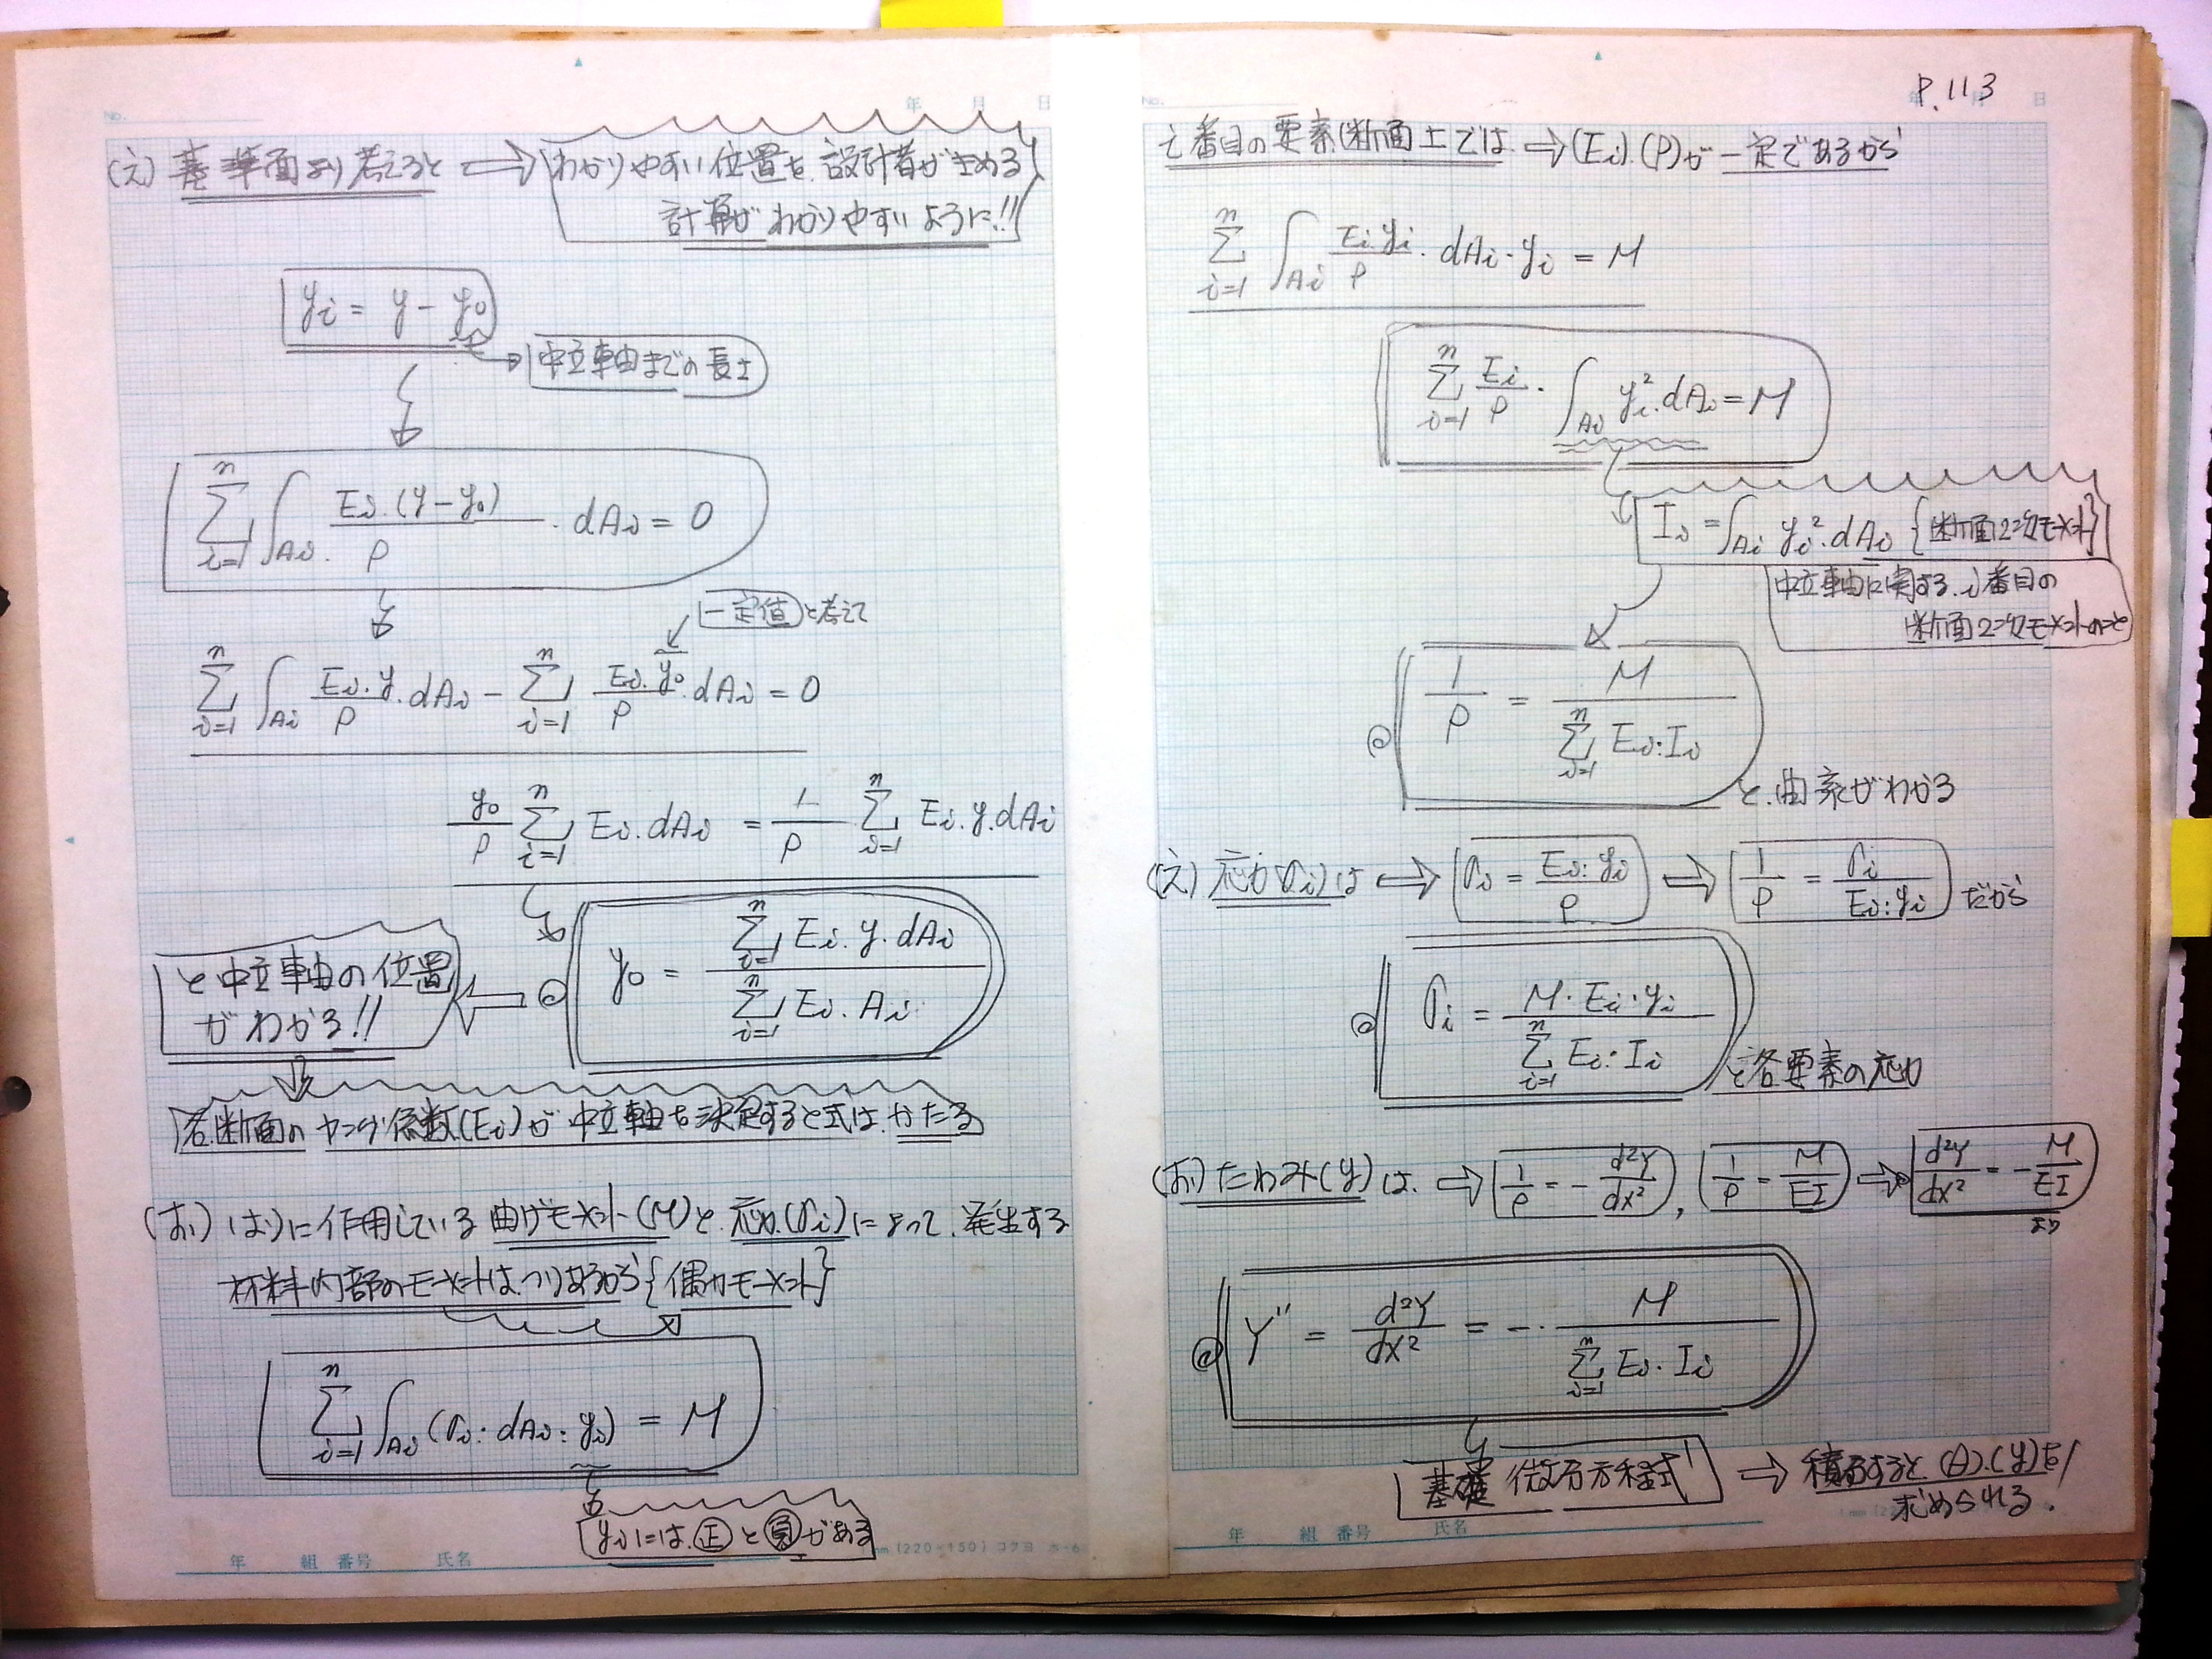 No.
年 月 日
(え) 基準面より考えると ⇒ わかりやすい位置を、設計者がきめる
計算がわかりやすいように!!
yi = y − y0
中立軸までの長さ
Σ[i=1→n] ∫Ai Ei.(y−y0)/ρ · dAi = 0
一定値と考えて
Σ[i=1→n] ∫Ai Ei.y/ρ . dAi − Σ[i=1→n] Ei.y0/ρ . dAi = 0
y0/ρ Σ[i=1→n] Ei.dAi = 1/ρ Σ[i=1→n] Ei.y.dAi
y0 = Σ[i=1→n] Ei.y.dAi / Σ[i=1→n] Ei.Ai
と中立軸の位置
がわかる!!
各断面のヤング係数(Ei)が中立軸を決定すると式は、かたる
(お) はりに作用している曲げモーメント(M)と、応力(σi)によって、発生する
材料内部のモーメントは、つりあるから{偶力モーメント}
Σ[i=1→n] ∫Ai (σi · dAi · yi) = M
yiには、正と負がある
年 組 番号 氏名
1mm (220×150) コクヨ ホ-6
No.
年 月 日
P.113
i番目の要素(断面上では、⇒ (Ei).(ρ)が一定であるから
Σ[i=1→n] ∫Ai Ei.yi/ρ · dAi · yi = M
Σ[i=1→n] Ei/ρ · ∫Ai yi².dAi = M
Ii = ∫Ai yi².dAi {断面2次モーメント}
中立軸に関する、i番目の
断面2次モーメントのこと
1/ρ = M / Σ[i=1→n] Ei·Ii
と、曲率がわかる
(え) 応力(σi)は ⇒ σi = Ei·yi/ρ ⇒ 1/ρ = σi/Ei·yi だから
σi = M·Ei·yi / Σ[i=1→n] Ei·Ii
と各要素の応力
(お) たわみ(y)は、⇒ 1/ρ = − d²Y/dx² , 1/ρ = M/EI → d²Y/dx² = − M/EI
より
Y'' = d²Y/dx² = −· M / Σ[i=1→n] Ei·Ii
基礎微分方程式 ⇒ 積分すると、(θ).(y)を
求められる.
年 組 番号 氏名